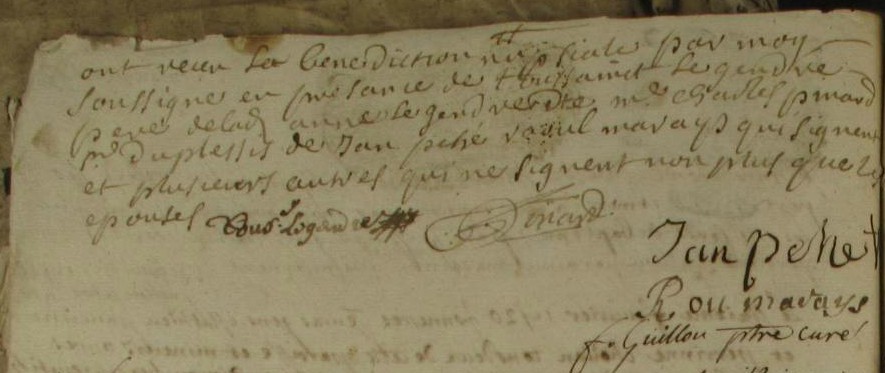 ont receu La benediction nuptiale par moy
soussigné en présance de toussainct Legendre
pere de lad anne Legendre dte mre charles pinard
sr duplessis de Jan pehé raoul marays qui signent
et plusieurs autres qui ne signent non plus que les
epousés Tous. Legendre Pinard
Jan pehe
Raou marays
f. Guillou ptre curé